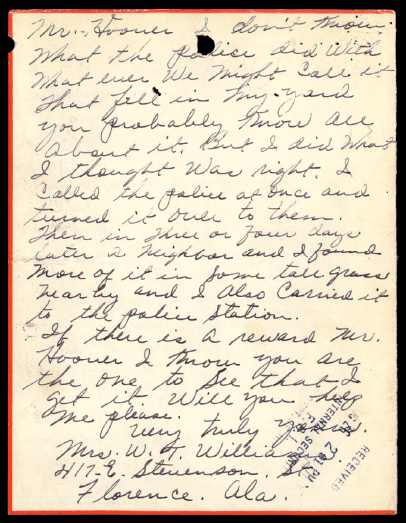 Mr. Hoover I don't know
what the police did with
what ever we might call it
that fell in my yard
you probably know all
about it. But I did what
I thought was right. I
called the police at once and
turned it over to them.
Then in three or four days
later a neighbor and I found
more of it in some tall grass
nearby and I also carried it
to the police station.
If there is a reward Mr.
Hoover I know you are
the one to see that I
get it. Will you help
me please.
Very truly yours.
Mrs. W. T. Williams
417-E. Stevenson, St.
Florence. Ala.
RECEIVED
2 01 PM
INTERNAL SECURITY